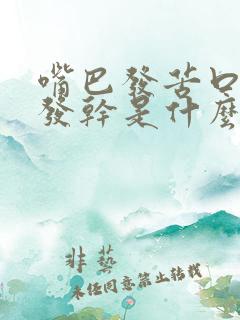 嘴巴發苦口
發幹是什麼
非藝
未經同意禁止轉載